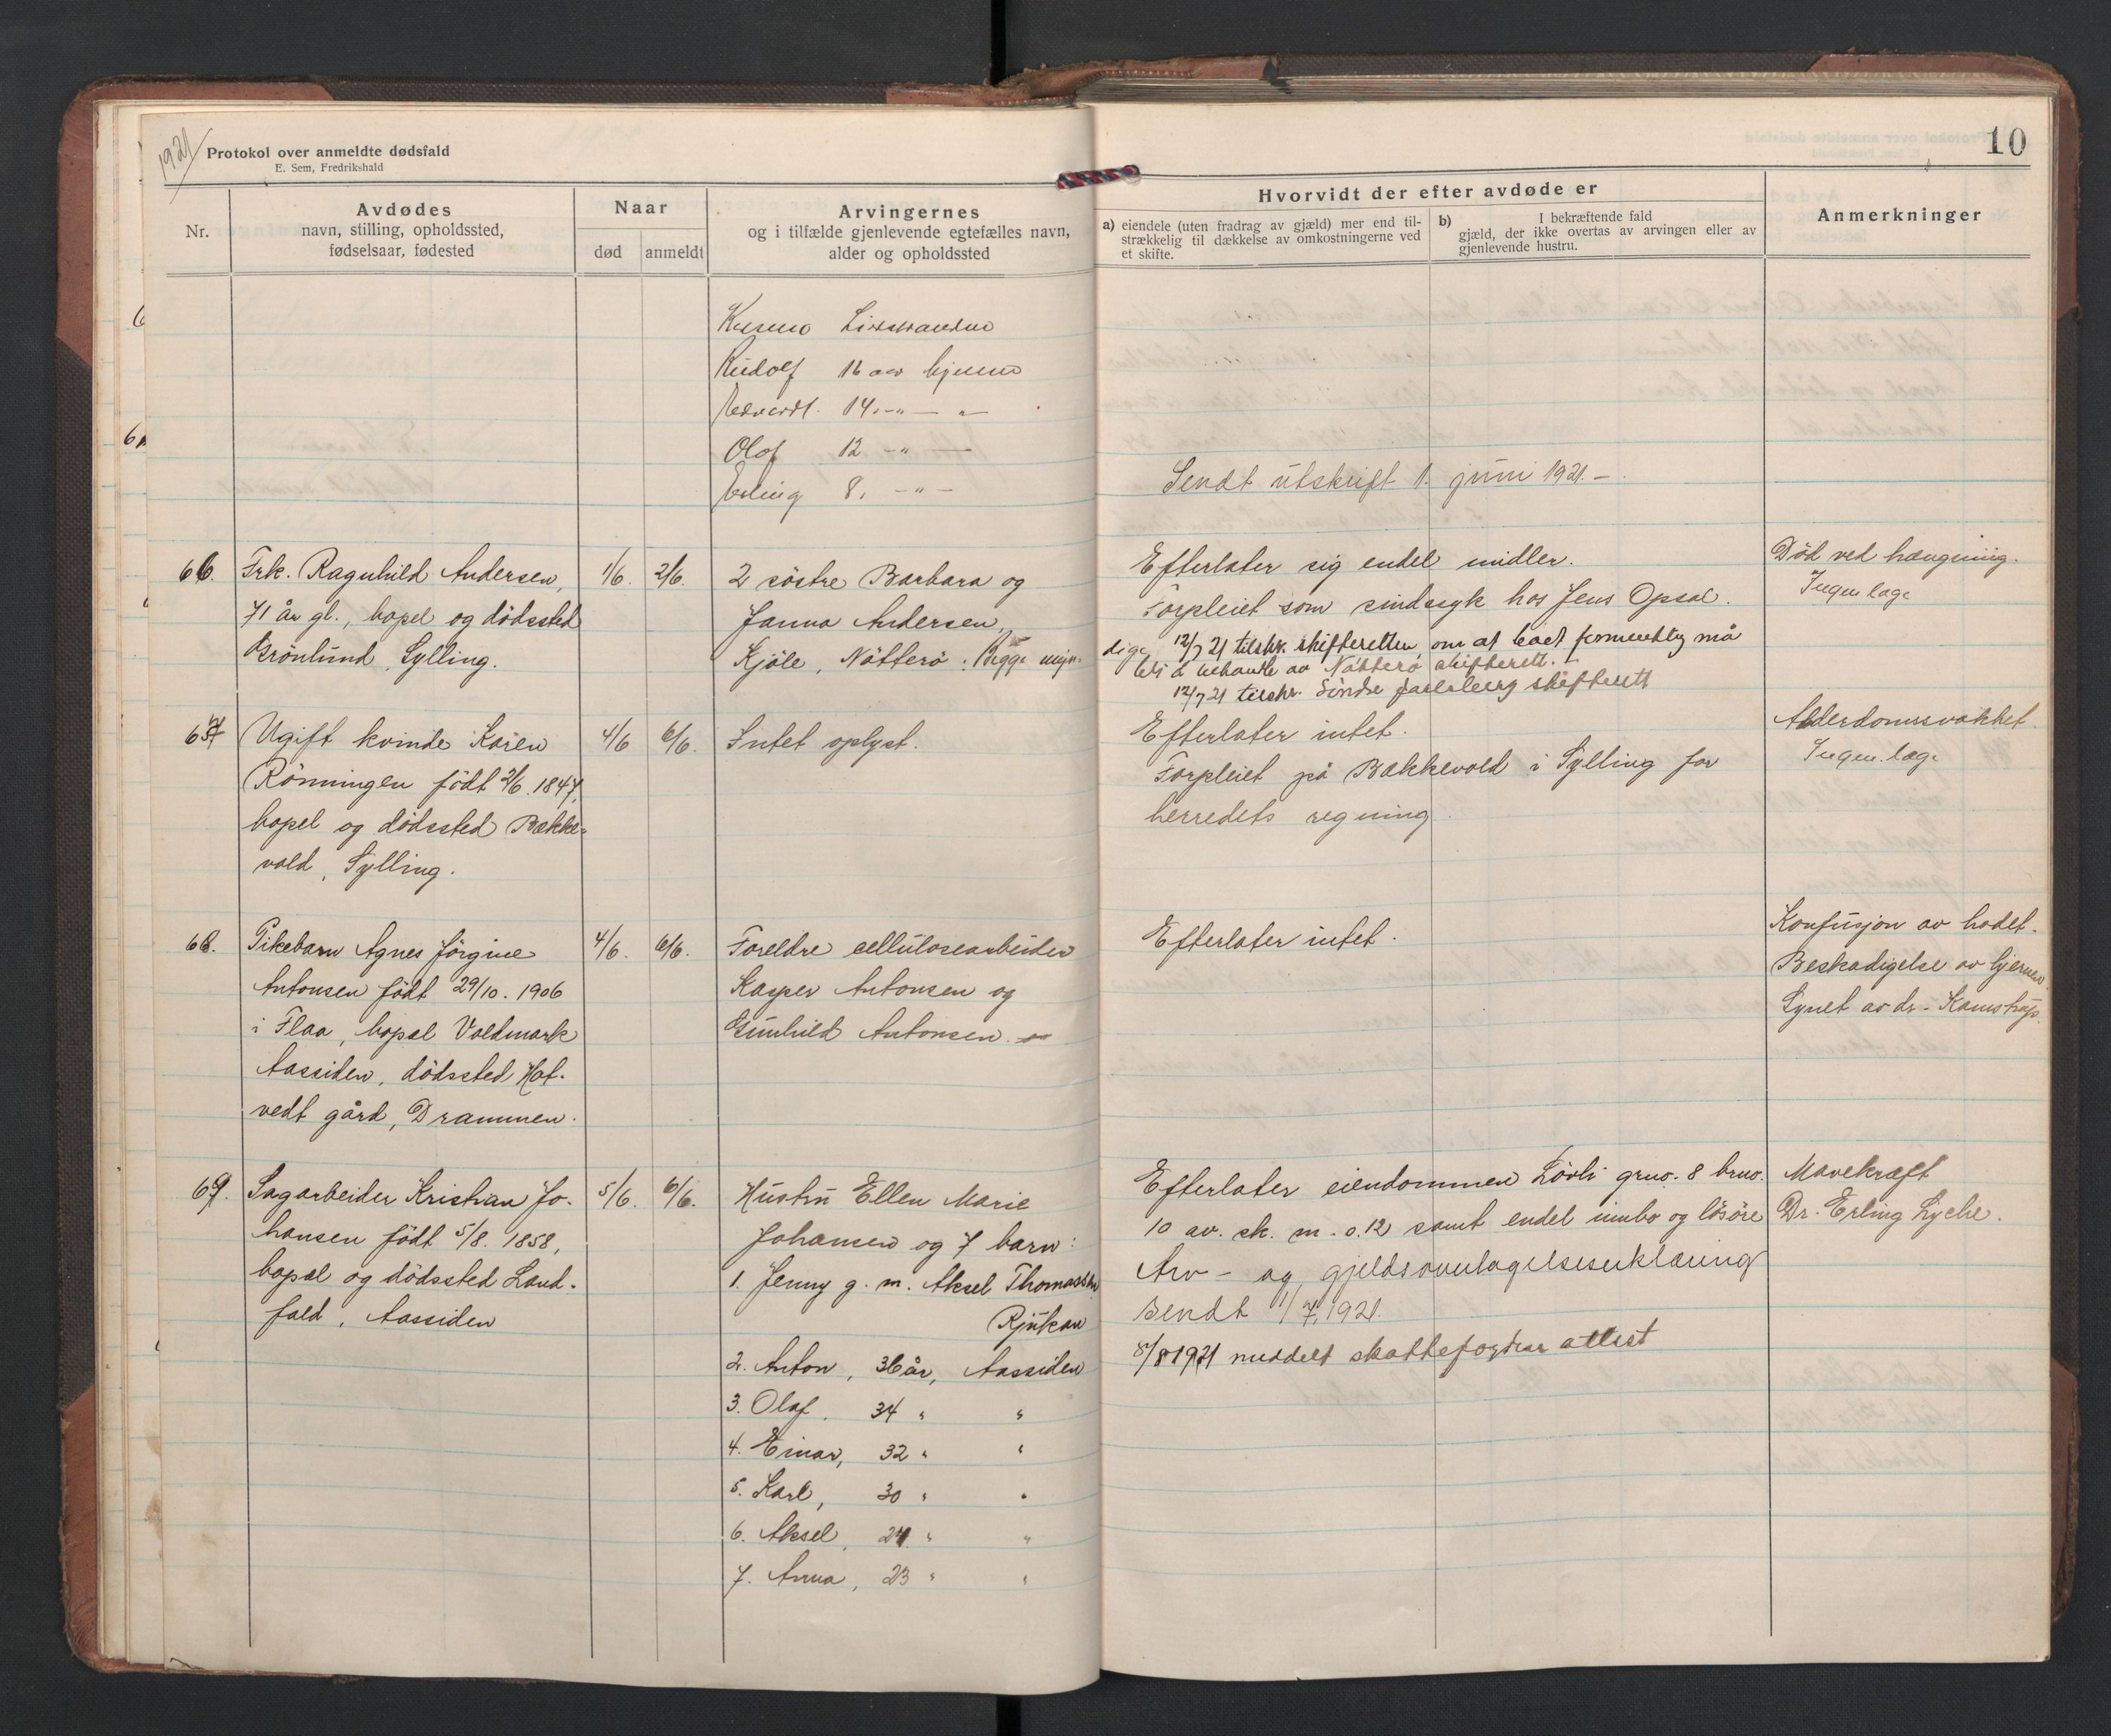 1921
Protokol over anmeldte dødsfald
E. Sem, Fredrikshald
10
Nr.
Avdødes
navn, stilling, opholdssted,
fødselsaar, fødested
Naar
død
anmeldt
Arvingernes
og i tilfælde gjenlevende egtefælles navn,
alder og opholdssted
Hvorvidt der efter avdøde er
a) eiendele (uten fradrag av gjæld) mer end til-
strækkelig til dækkelse av omkostningerne ved
et skifte.
b) I bekræftende fald
gjæld, der ikke overtas av arvingen eller av
gjenlevende hustru.
Anmerkninger
Rudolf 16 aar hjemme
Edvardt. 14 -"- "
Olof 12 -"-
Erling 8. -"-
Sendt utskrift 1. juni 1921.-
66.
Frk. Ragnhild Andersen,
71 år gl., bopel og dödssted
Grönlund, Sylling.
1/6.
2/6.
2 söstre Barbara og
Janna Andersen,
Kjöle, Nötterö. Begge myn-
dige
Efterlater sig endel midler.
Forpleiet som sindssyk hos Jens Opsal.
12/7 21 tilskr. skifteretten om at boet formentlig må
bli å behandle av Nötterö skifterett.
12/7 21 tilskr. Söndre Jarlsberg skifterett
Död ved hængning.
Ingen læge
67
Ugift kvinde Karen
Rönningen födt 2/6. 1847,
bopel og dödssted Bække-
vold, Sylling.
4/6
6/6.
Intet oplyst.
Efterlater intet.
Forpleiet på Bækkevold i Sylling for
herredets regning
Alderdomssvakhet.
Ingen læge
68.
Pikebarn Agnes Jörgine
Antonsen födt 29/10. 1906
i Flaa, bopel Voldmark
Aassiden, dödssted Hot-
vedt gård, Drammen.
4/6.
6/6.
Foreldre cellulosearbeider
Kasper Antonsen og
Gunhild Antonsen.
Efterlater intet.
Konfusjon av hodet.
Beskadigelse av hjernen.
Synet av dr. Kamstrup.
69.
Sagarbeider Kristian Jo-
hansen födt 5/8. 1858,
bopel og dödssted Land-
fald, Aassiden
5/6.
6/6.
Hustru Ellen Marie
Johansen og 7 barn:
1. Jenny g. m. Aksel Thomassen
Rjukan
2. Anton, 36 år, Aassiden
3. Olaf, 34 " "
4. Einar, 32 " "
5. Karl, 30 " "
6. Aksel, 24 " "
7. Anna, 23 " "
Efterlater eiendommen Lövli grno. 8 brno.
10 av sk. m. 0.12 samt endel innbo og lösöre
Arv- og gjeldsovertagelseserklæring
sendt 1/7 1921.
5/8 1921 meddelt skattefogdens attest
Mavekræft
Dr. Erling Lyche.